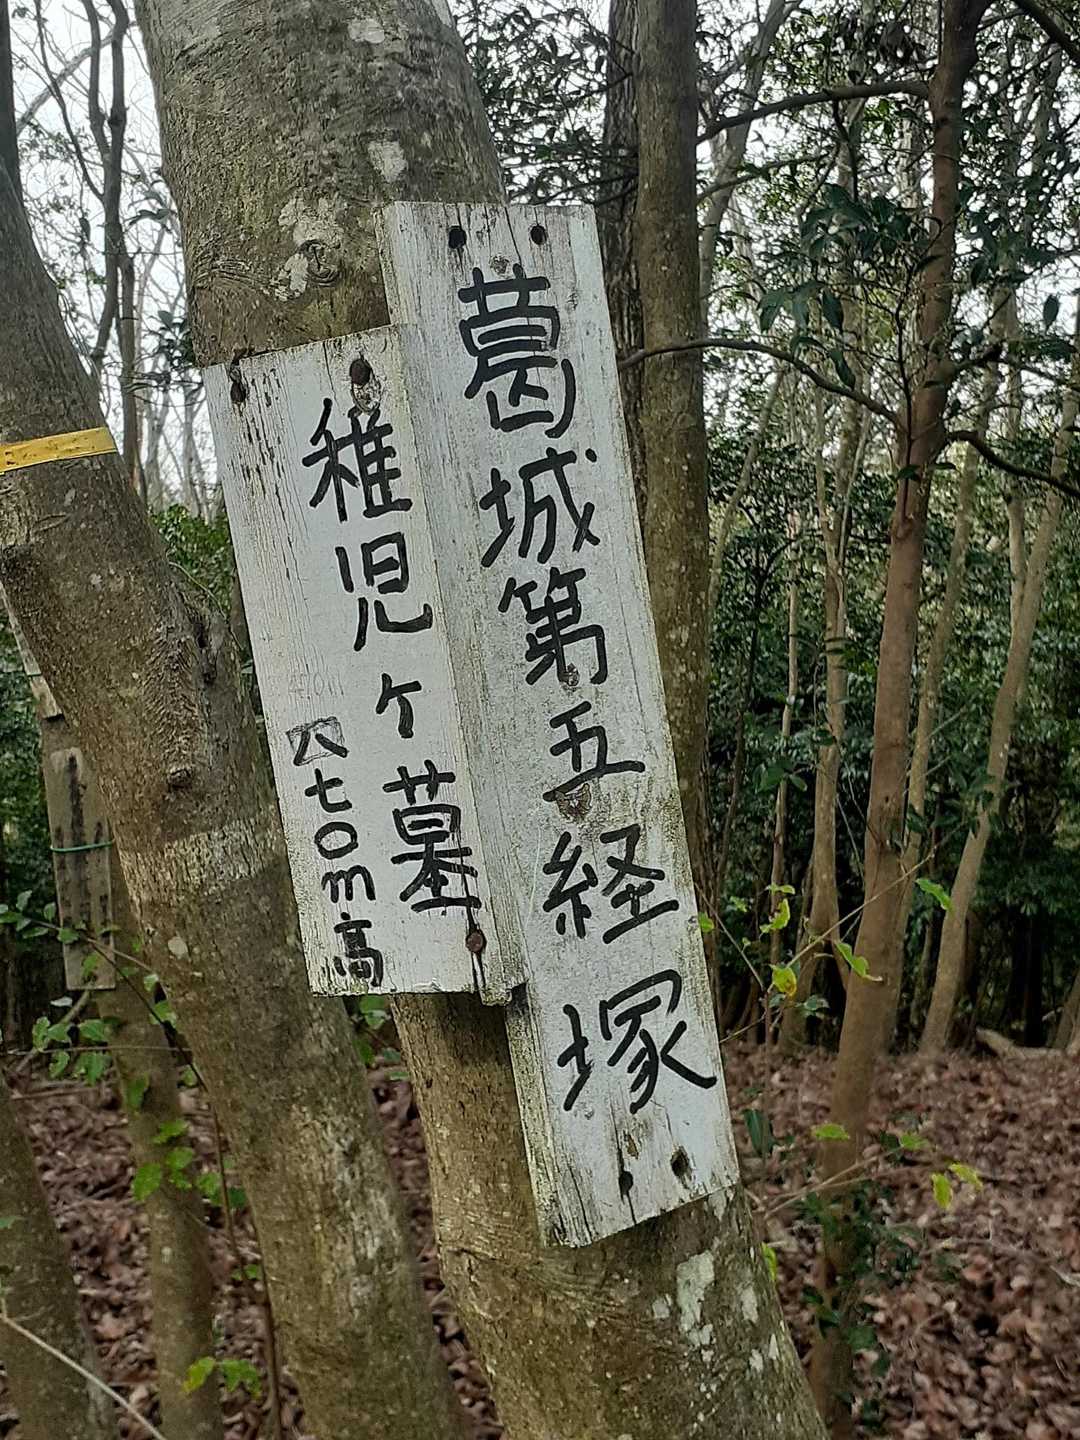 葛城第五経塚
稚児ヶ墓
六七〇m高